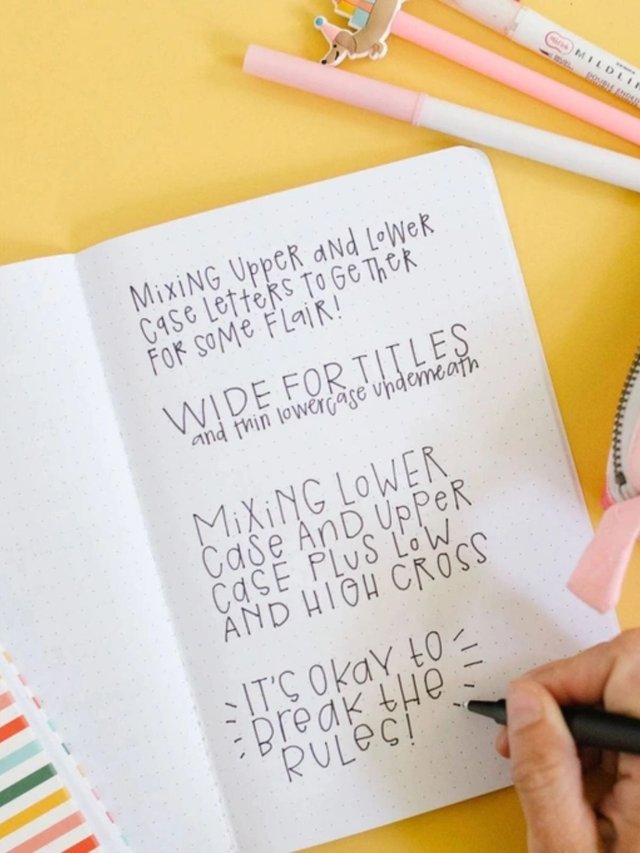 MILDLIN
DOUBLE ENDED
MiXiNG UppeR aNd LoWeR
CaSe LeTTeRS ToGeTheR
FOR SOMe FLaiR!
WIDE FOR TITLES
and thin lowercase underneath
MiXiNG LoWER
CaSe AnD UppeR
CaSE PLUS LoW
AND HIGH CROSS
IT'S OKaY tO
BReak tHe
RULeS!